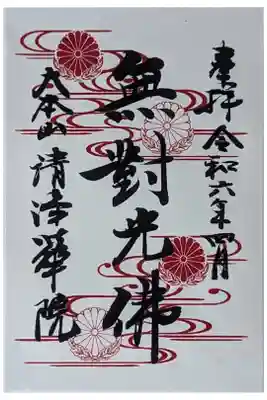 奉拝 令和六年四月
無對光佛
大本山 清浄華院